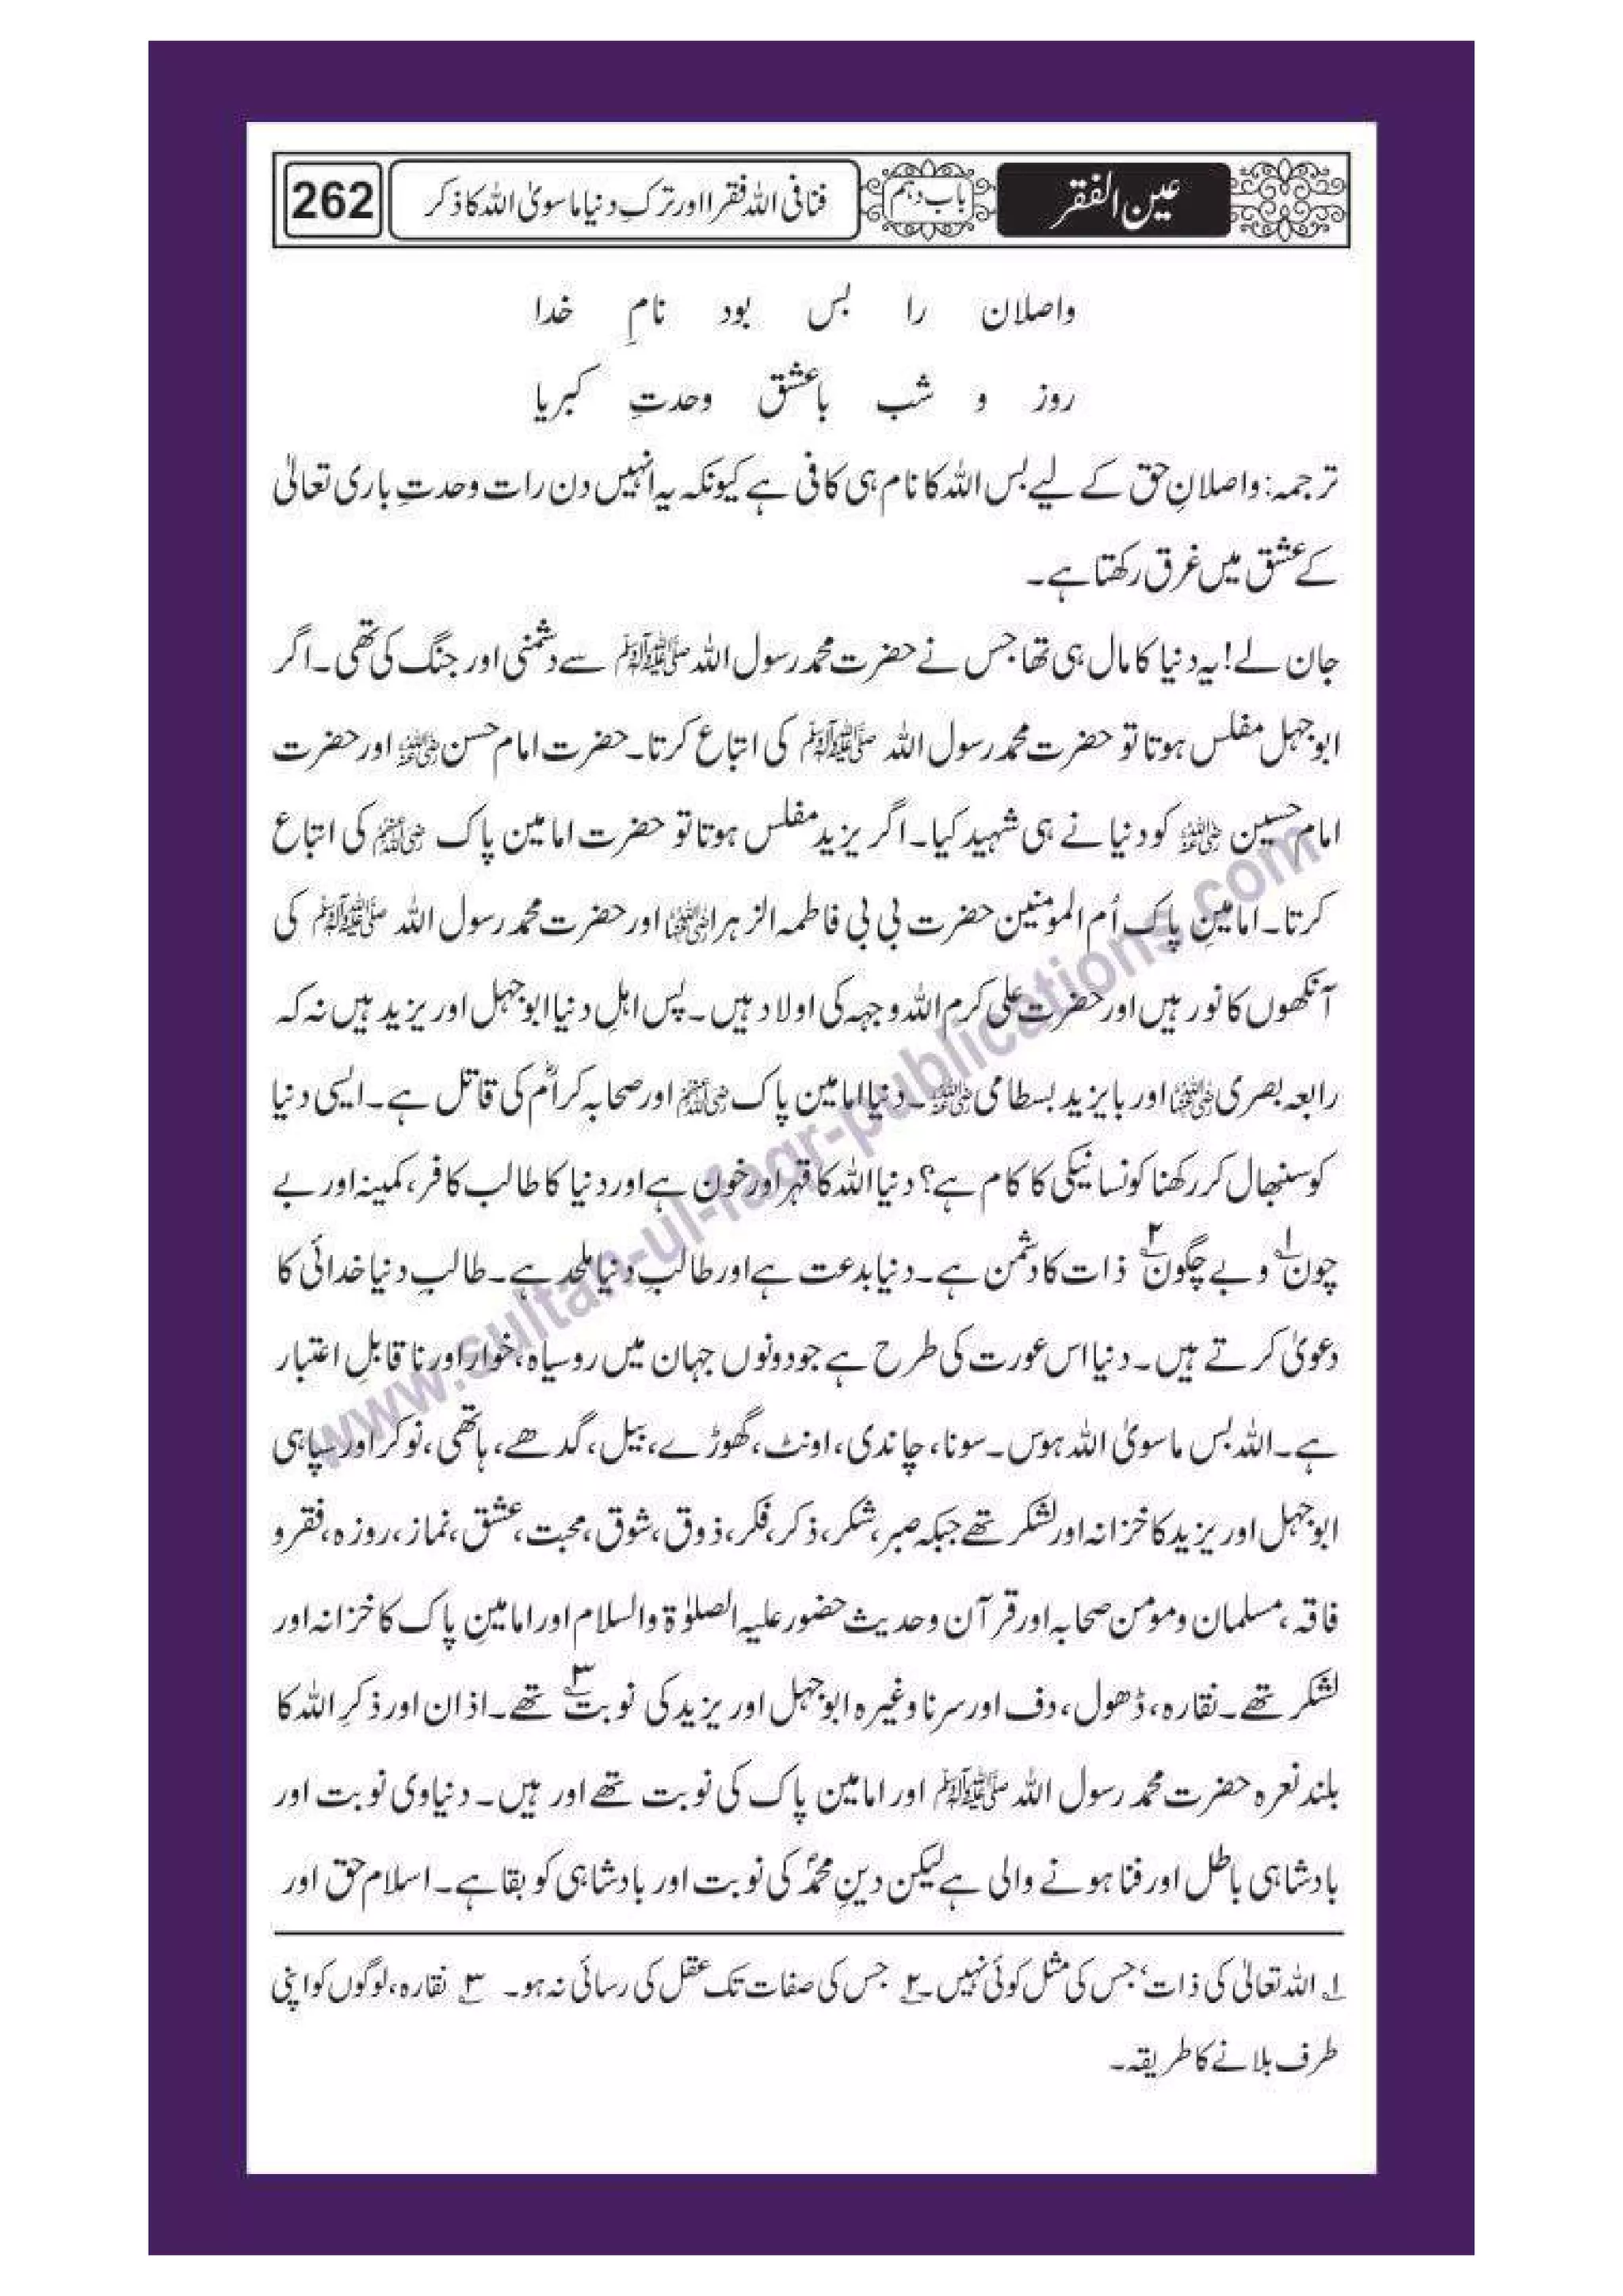 عین الفقر باب دہم فنا فی اللہ فقرا اور ترکِ دنیا ماسویٰ اللہ کا ذکر 262
واصلان را بس بود نامِ خدا
روز و شب باعشق وحدتِ کبریا
ترجمہ: واصلانِ حق کے لیے بس اللہ کا نام ہی کافی ہے کیونکہ یہ انہیں دن رات وحدتِ باری تعالیٰ
کے عشق میں غرق رکھتا ہے۔
جان لے! یہ دنیا کا مال ہی تھا جس نے حضرت محمد رسول اللہ ﷺ سے دشمنی اور جنگ کی تھی۔ اگر
ابوجہل مفلس ہوتا تو حضرت محمد رسول اللہ ﷺ کی اتباع کرتا۔ حضرت امام حسن رضی اللہ عنہ اور حضرت
امام حسین رضی اللہ عنہ کو دنیا نے ہی شہید کیا۔ اگر یزید مفلس ہوتا تو حضرت امامین پاک رضی اللہ عنہم کی اتباع
کرتا۔ امامینِ پاک اُم المومنین حضرت بی بی فاطمہ الزہرا رضی اللہ عنہا اور حضرت محمد رسول اللہ ﷺ کی
آنکھوں کا نور ہیں اور حضرت علی کرم اللہ وجہہ کی اولاد ہیں۔ پس اہلِ دنیا ابوجہل اور یزید ہیں نہ کہ
رابعہ بصری رضی اللہ عنہا اور بایزید بسطامی رضی اللہ عنہ۔ دنیا امامین پاک رضی اللہ عنہم اور صحابہ کرامؓ کی قاتل ہے۔ ایسی دنیا
کو سنبھال کر رکھنا کونسا نیکی کا کام ہے؟ دنیا اللہ کا قہر اور خون ہے اور دنیا کا طالب کافر، کمینہ اور بے
چون۱ و بے چگون۲ ذات کا دشمن ہے۔ دنیا بدعت ہے اور طالبِ دنیا ملحد ہے۔ طالبِ دنیا خدائی کا
دعویٰ کرتے ہیں۔ دنیا اس عورت کی طرح ہے جو دونوں جہان میں روسیاہ، خوار اور ناقابلِ اعتبار
ہے۔ اللہ بس ماسویٰ اللہ ہوس۔ سونا، چاندی، اونٹ، گھوڑے، بیل، گدھے، ہاتھی، نوکر اور سپاہی
ابوجہل اور یزید کا خزانہ اور لشکر تھے جبکہ صبر، شکر، ذکر، فکر، ذوق، شوق، محبت، عشق، نماز، روزہ، فقر و
فاقہ، مسلمان و مومن صحابہ اور قرآن و حدیث حضور علیہ الصلوٰۃ والسلام اور امامینِ پاک کا خزانہ اور
لشکر تھے۔ نقارہ، ڈھول، دف اور سرنا وغیرہ ابوجہل اور یزید کی نوبت۳ تھے۔ اذان اور ذکرِ اللہ کا
بلند نعرہ حضرت محمد رسول اللہ ﷺ اور امامین پاک کی نوبت تھے اور ہیں۔ دنیاوی نوبت اور
بادشاہی باطل اور فنا ہونے والی ہے لیکن دینِ محمدؐ کی نوبت اور بادشاہی کو بقا ہے۔ اسلام حق اور
۱ اللہ تعالیٰ کی ذات، جس کی مثل کوئی نہیں۔ ۲ جس کی صفات تک عقل کی رسائی نہ ہو۔ ۳ نقارہ، لوگوں کو اپنی
طرف بلانے کا طریقہ۔
www.sultan-ul-faqr-publications.com